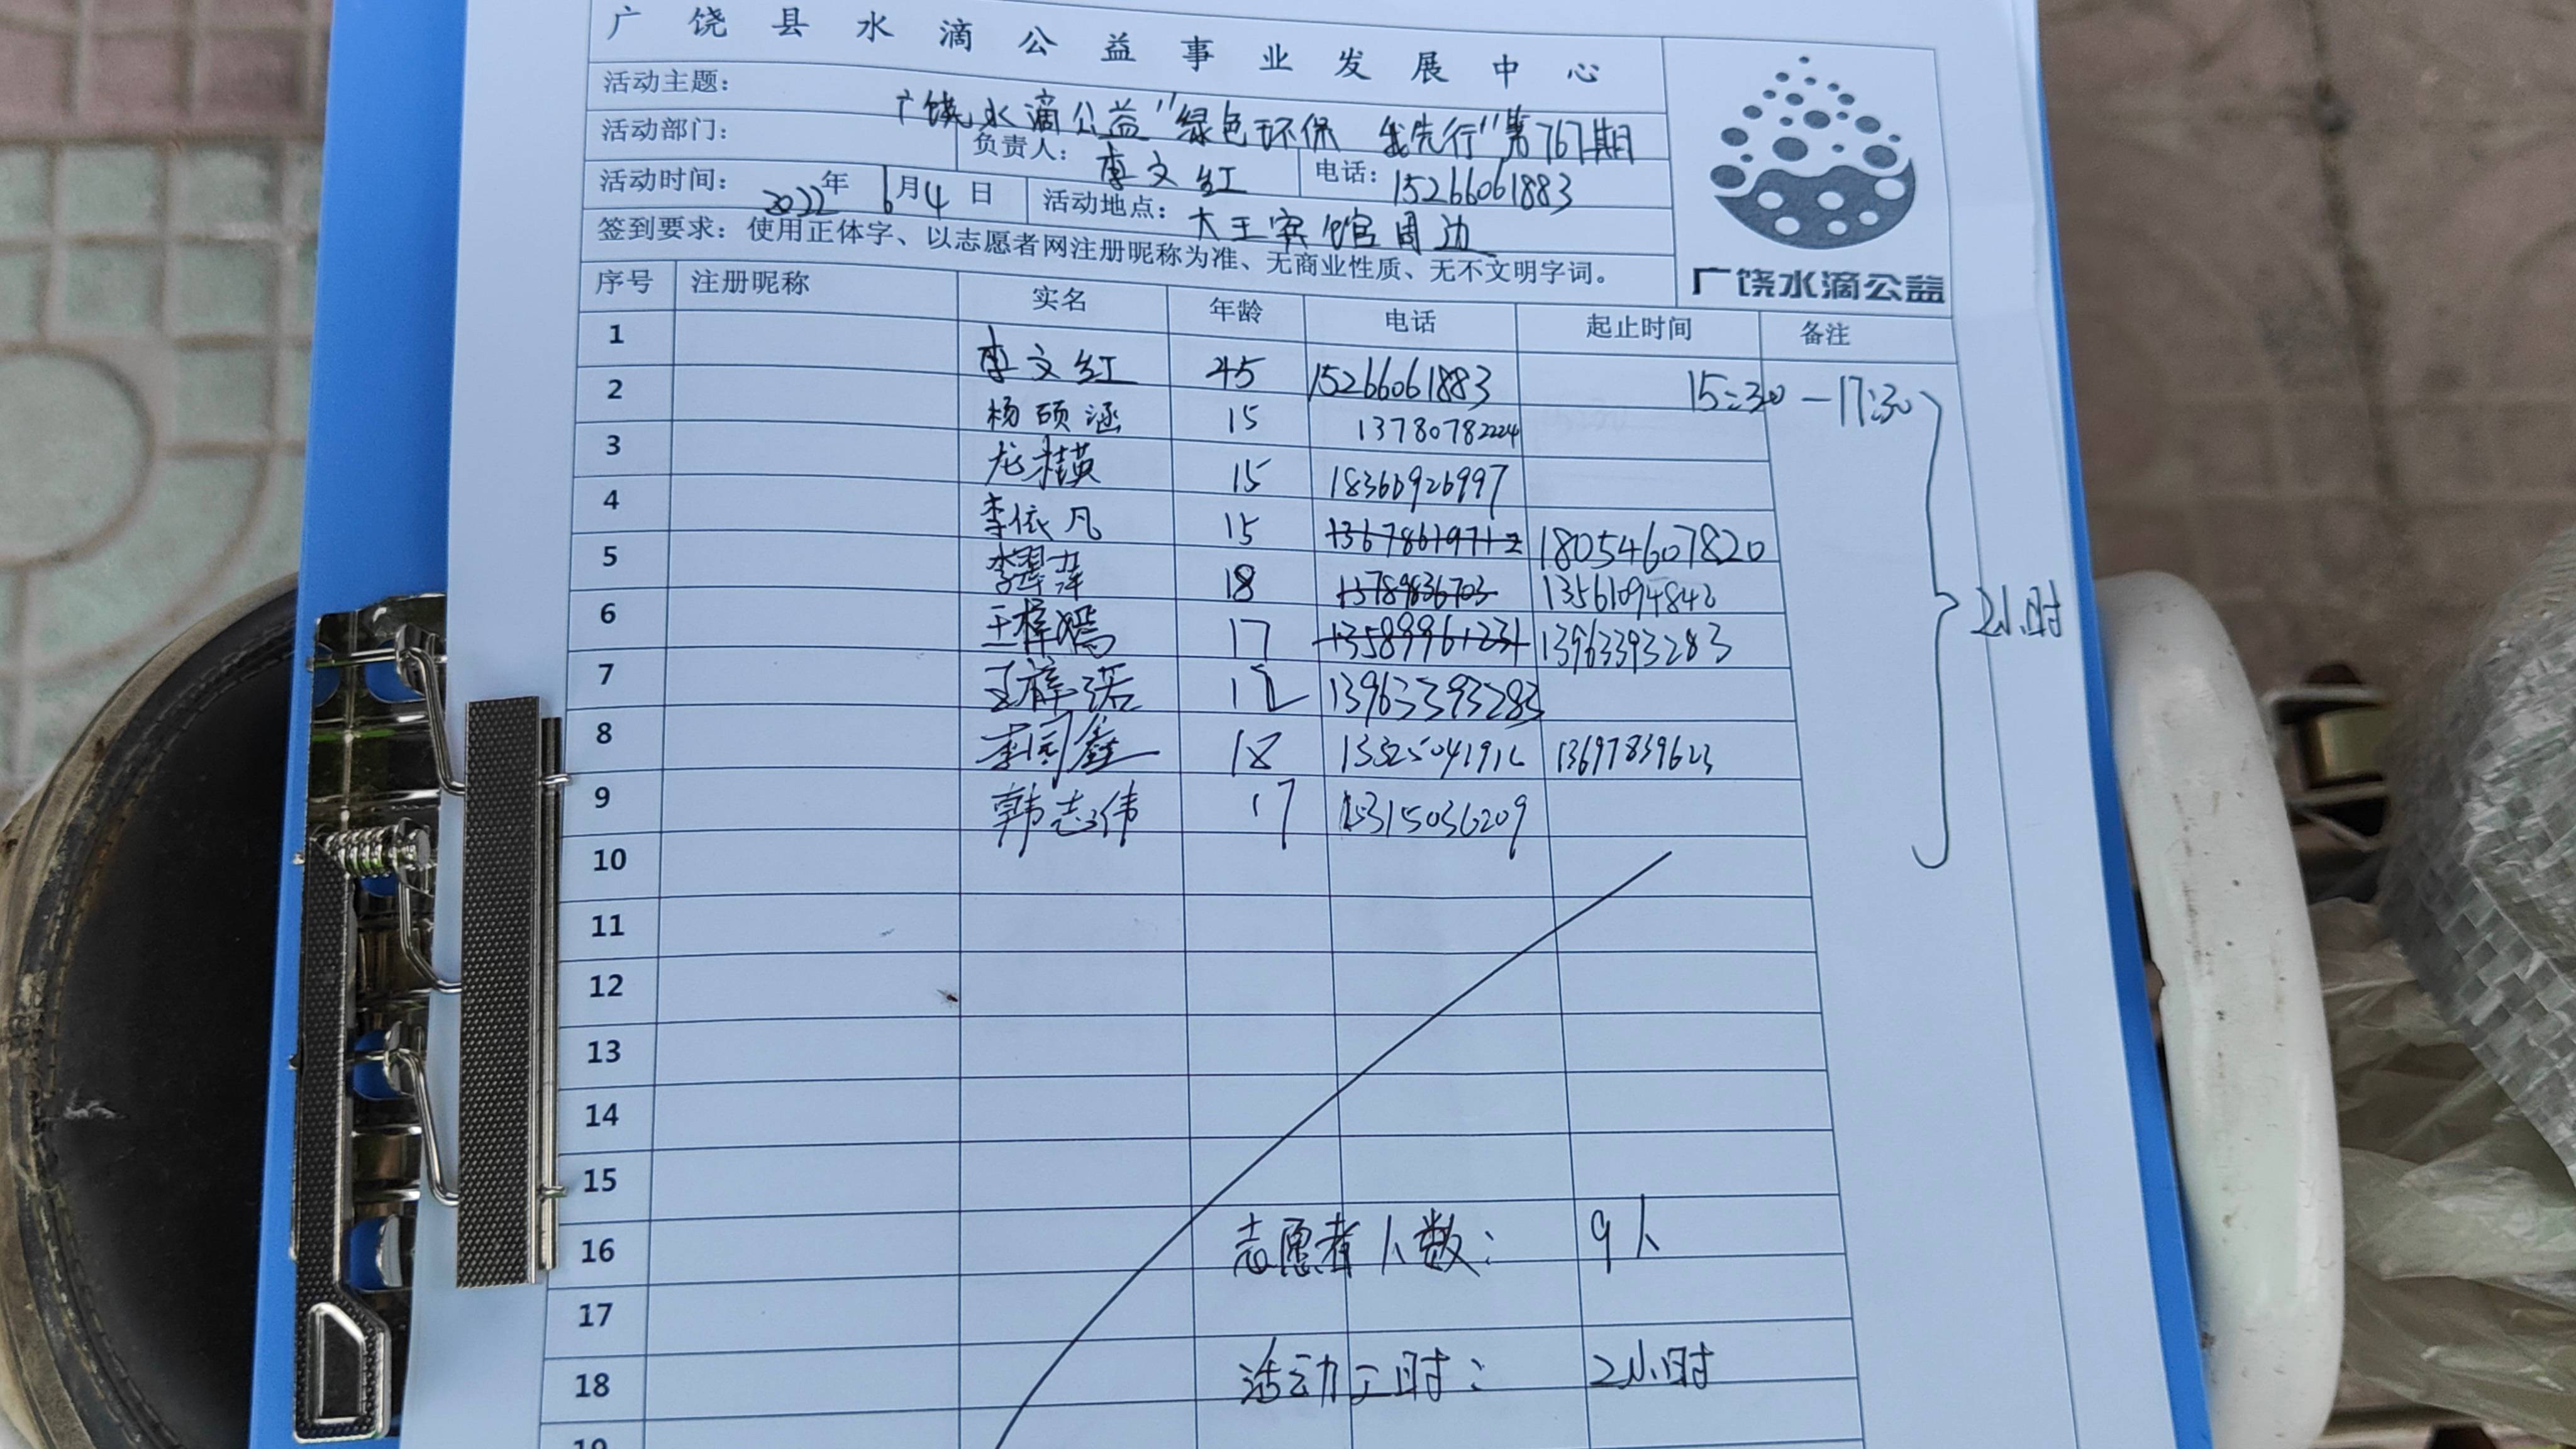 广饶县水滴公益事业发展中心
活动主题： 广饶水滴公益"绿色环保 我先行"第767期
活动部门： 负责人：李文红 电话：15266061883
活动时间：2022年6月4日 活动地点：大王宾馆周边
签到要求：使用正体字、以志愿者网注册昵称为准、无商业性质、无不文明字词。
广饶水滴公益
序号 注册昵称 实名 年龄 电话 起止时间 备注
1 李文红 45 15266061883 15:30－17:30
2 杨硕涵 15 13780782224
3 15 18366926997
4 李依凡 15 13678619712 18054607820
5 18 13789836703 13561094842
6 王梓嫣 17 13589961231 13963393283
2小时
7 王梓诺 12 13963393283
8 18 13697839623
9 韩志伟 17 15315036209
10
11
12
13
14
15
16 志愿者人数： 9人
17
18 活动工时： 2小时
19